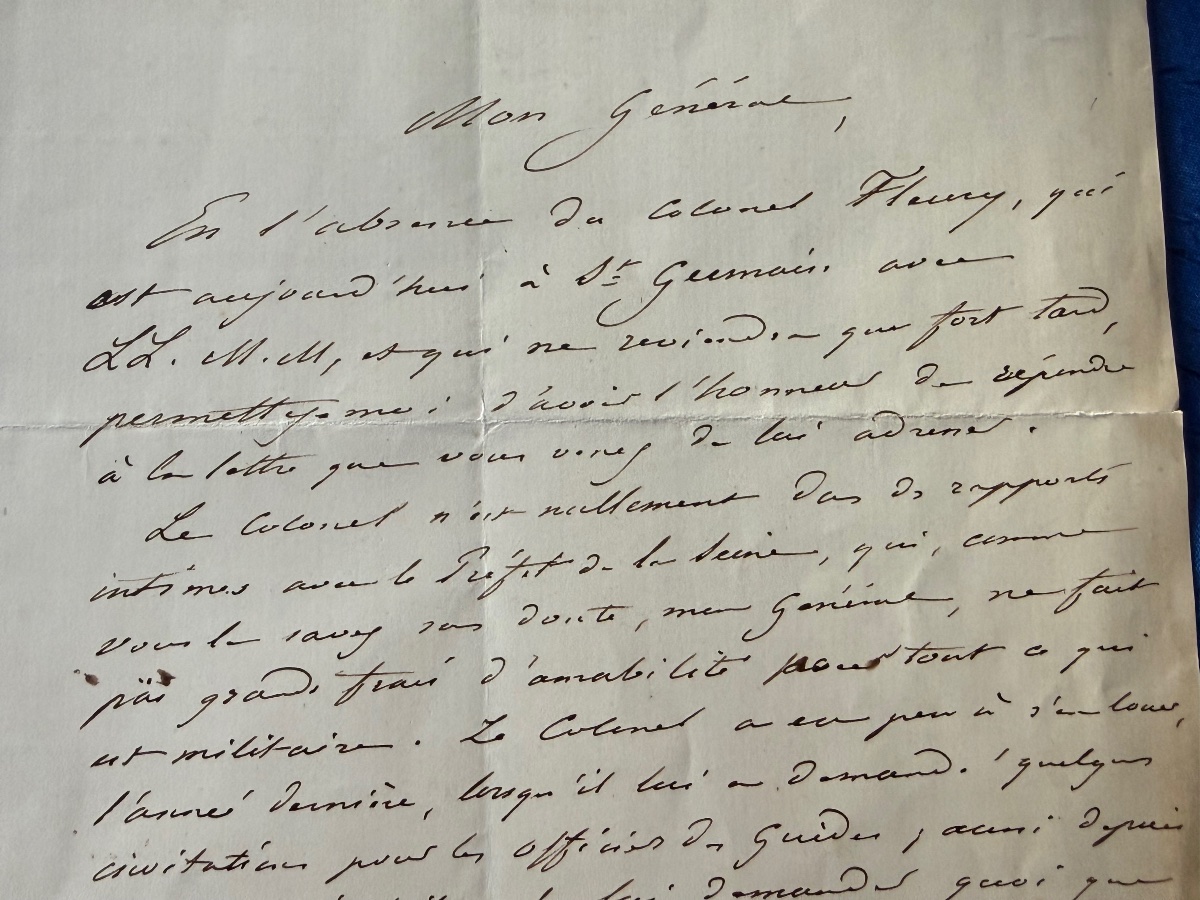 Mon Général,
En l'absence du Colonel Fleury, qui
est aujourd'hui à St Germain avec
LL. M.M, et qui ne reviendra que fort tard,
permettez-moi d'avoir l'honneur de répondre
à la lettre que vous venez de lui adresser.
Le Colonel n'est nullement dans des rapports
intimes avec le Préfet de la Seine, qui, comme
vous le savez sans doute, mon Général, ne fait
pas grands frais d'amabilité pour tout ce qui
est militaire. Le Colonel a eu peu à s'en louer,
l'année dernière, lorsqu'il lui a demandé quelques
invitations pour les officiers des Guides, aussi depuis
lui demander quoi que